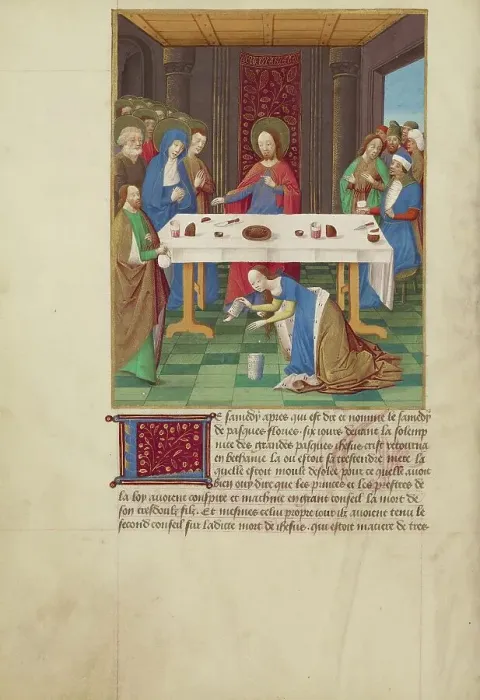 e samedy apres qui est dit et nomme le samedy
de pasques flories six iours deuant la solemp
nite des grandes pasques ihesus crist retourna
en bethanie la ou estoit sa trestendre mere la
quelle estoit moult desolee pour ce quelle auoit
bien ouy dire que les princes et les prestres de
la loy auoient conspire et machine en grant conseil la mort de
son tresdoulz filz. Et mesmes celui propre iour ilz auoient tenu le
second conseil sur ladicte mort de ihesus. qui estoit matiere de tres